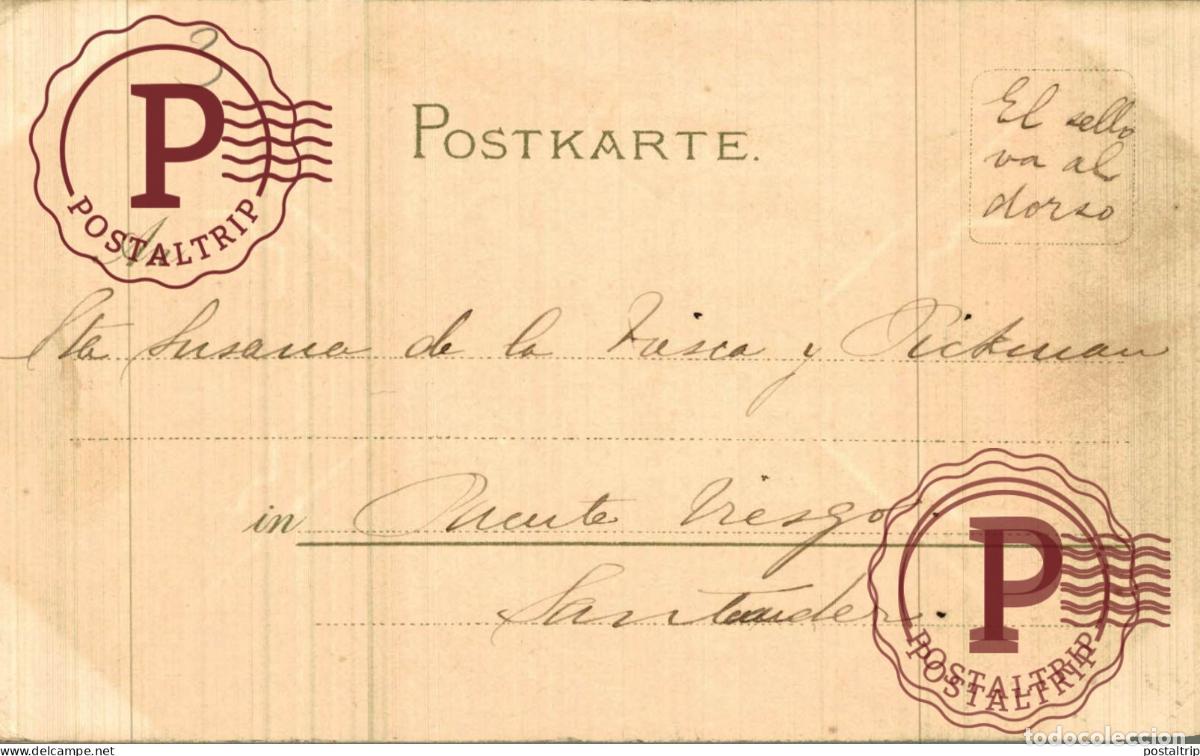 3
POSTKARTE.
El sello
va al
dorso
P
POSTALTRIP
An
Sta Susana de la Viesca y Pickman
in Puente Viesgo.
Santander.
P
POSTALTRIP
todocoleccion
postaltrip